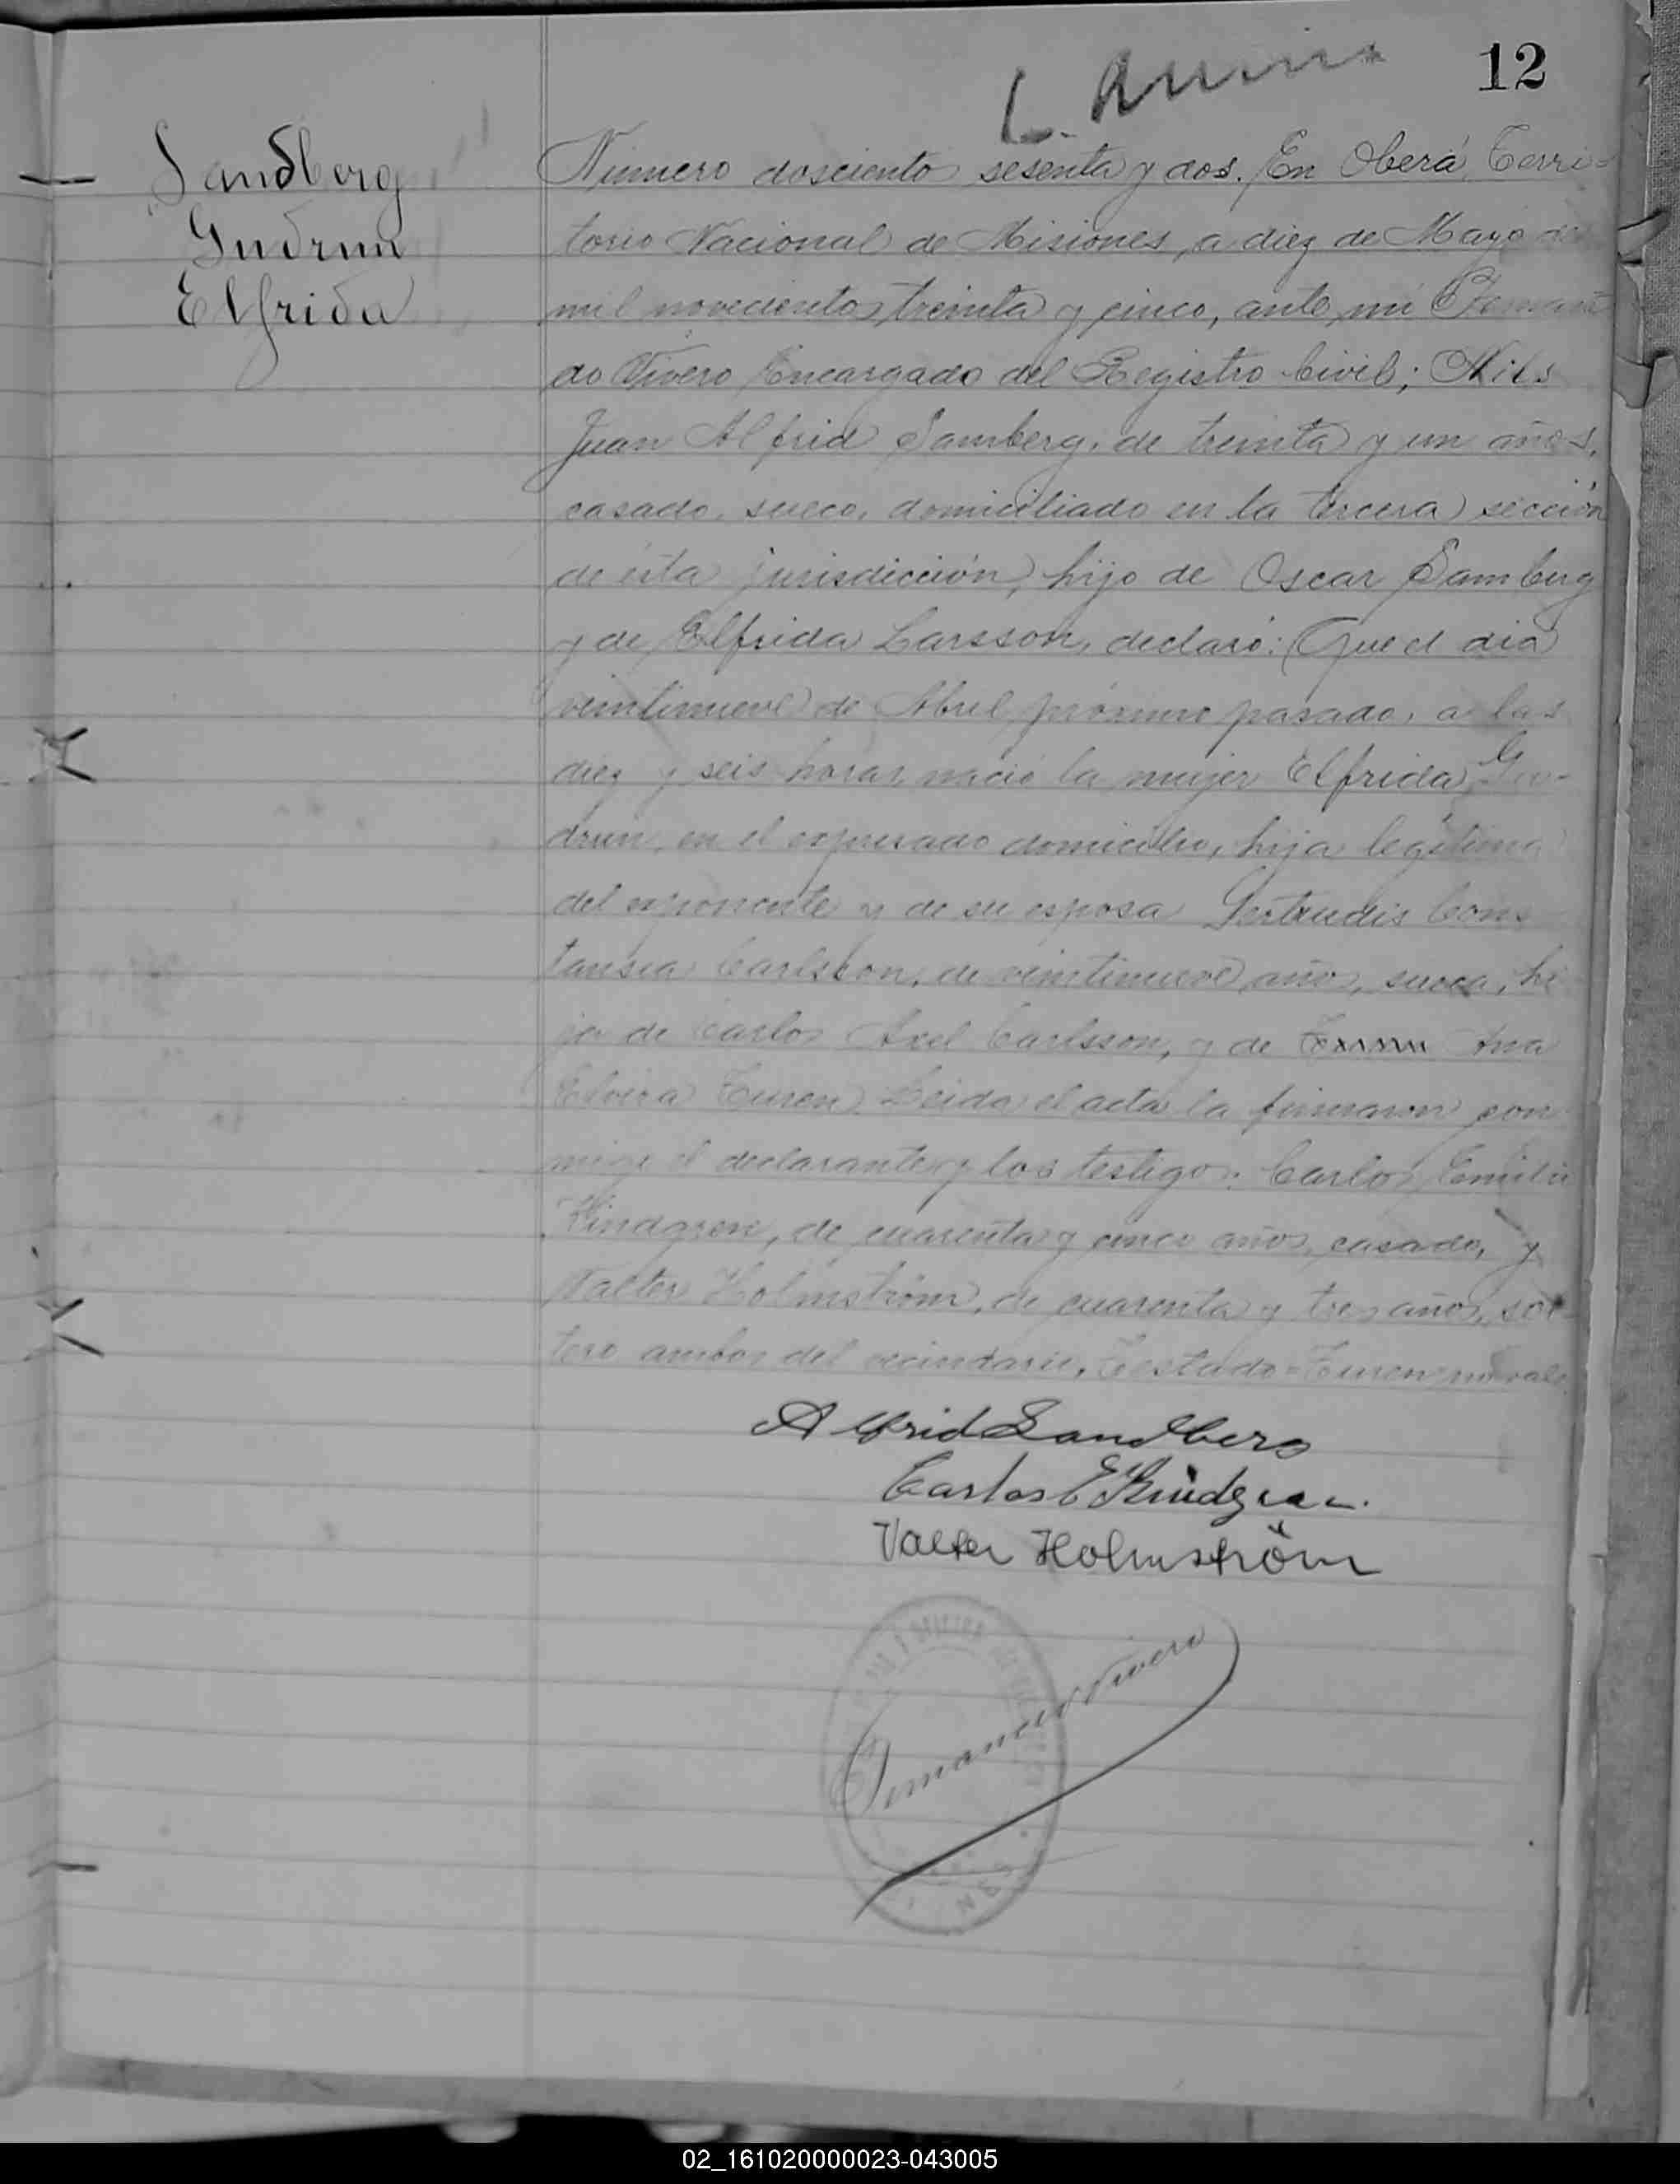 12
Sandberg
Gudrun
Elfrida
Número dosciento sesenta y dos. En Oberá, Terri-
torio Nacional de Misiones, a diez de Mayo de
mil novecientos treinta y cinco, ante mi Fernan-
do Vivero Encargado del Registro Civil; Nils
Juan Alfrid Samberg, de treinta y un años,
casado, sueco, domiciliado en la tercera sección
de ésta jurisdicción, hijo de Oscar Samberg
y de Elfrida Larsson, declaró: Que el dia
veintinueve de Abril próximo pasado, a las
diez y seis horas, nació la mujer Elfrida Gu-
drun, en el expresado domicilio, hija legítima
del exponente y de su esposa Gertrudis Cons
tansia Carlsson, de veintinueve años, sueca, hi
ja de Carlos Axel Carlsson, y de Ana
Elvira Turen. Leida el acta la firmaron con
migo el declarante y los testigos: Carlos Emilio
Kindgren, de cuarenta y cinco años, casado, y
Valter Holmström, de cuarenta y tres años, sol-
tero ambos del vecindario. Testado=Turen=no vale
Alfrid Sandberg
Carlos E Kindgren.
Valter Holmström
Fernando Vivero
02_161020000023-043005